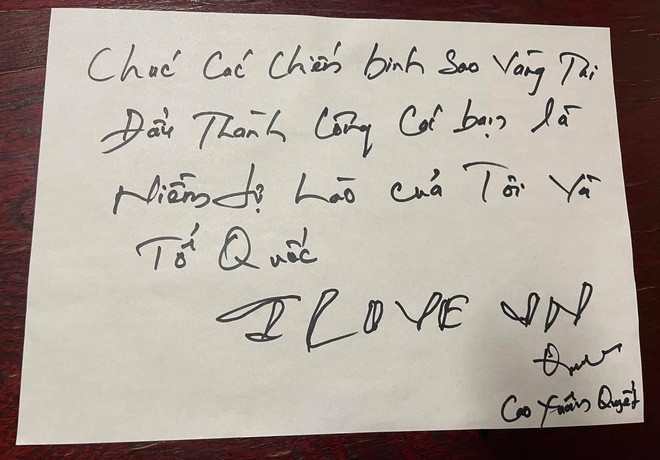 Chúc Các Chiến binh Sao Vàng Thi
Đấu Thành Công Các bạn là
Niềm tự hào của Tôi và
Tổ Quốc
I LOVE VN
Cao Xuân Quyết